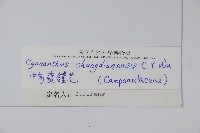 Cyananthus chungdianensis C Y Wu
中甸蓝钟花 (Campanulaceae)
定名人: